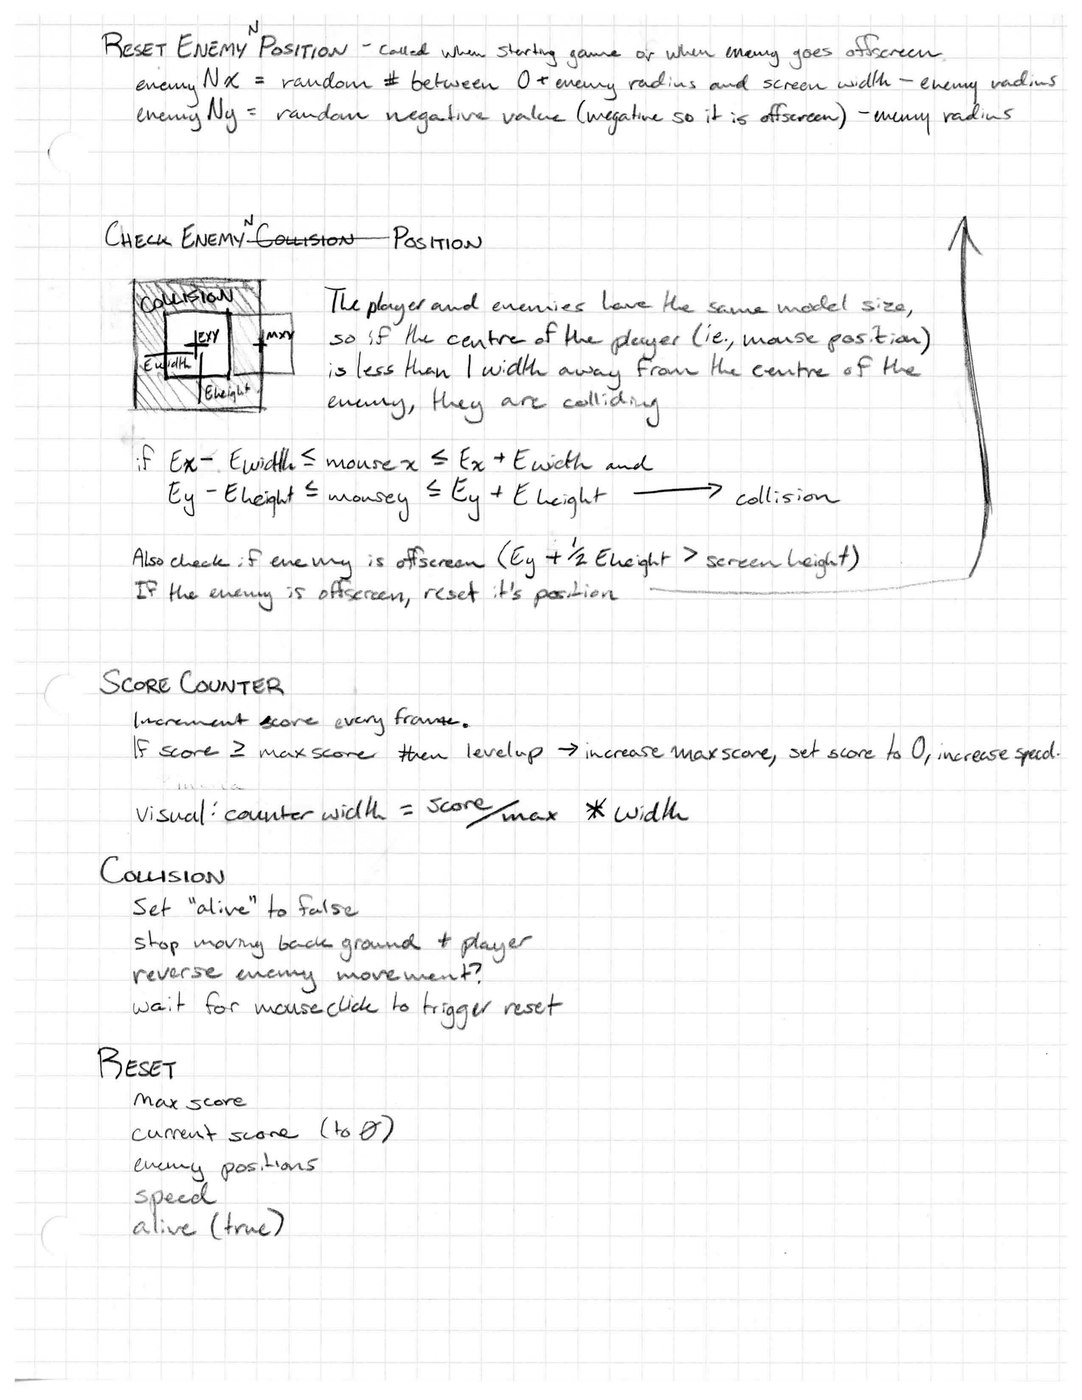 RESET ENEMY N POSITION - called when starting game or when enemy goes offscreen
enemy Nx = random # between 0 + enemy radius and screen width - enemy radius
enemy Ny = random negative value (negative so it is offscreen) - enemy radius
CHECK ENEMY N COLLISION POSITION
COLLISION
EXY
MXY
Ewidth
Eheight
The player and enemies have the same model size,
so if the centre of the player (ie., mouse position)
is less than 1 width away from the centre of the
enemy, they are colliding
if Ex - Ewidth ≤ mousex ≤ Ex + Ewidth and
Ey - Eheight ≤ mousey ≤ Ey + Eheight → collision
Also check if enemy is offscreen (Ey + 1/2 Eheight > screen height)
If the enemy is offscreen, reset it's position
SCORE COUNTER
Increment score every frame.
If score ≥ maxscore then levelup → increase maxscore, set score to 0, increase speed.
visual: counter width = score/max * width
COLLISION
Set "alive" to false
stop moving background + player
reverse enemy movement?
wait for mouseclick to trigger reset
RESET
max score
current score (to 0)
enemy positions
speed
alive (true)